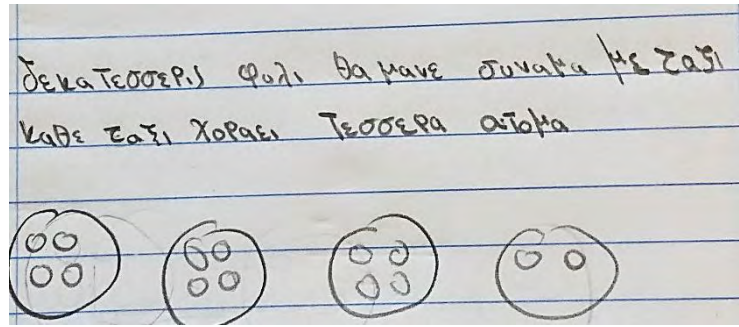 δεκατεσσερις φυλι θα μανε συναμα με ταξι
καθε ταξι χοραει τεσσερα ατομα